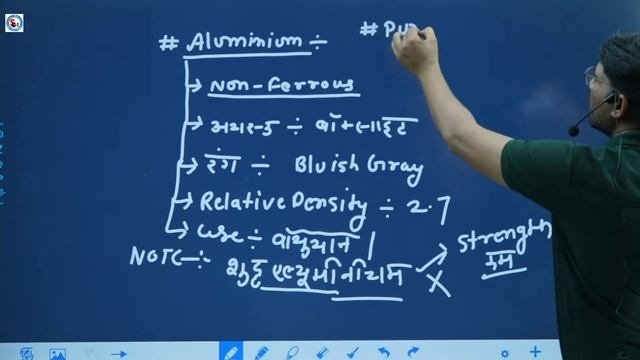 # Aluminium ÷
# Pu
→ Non-Ferrous
→ अयस्क ÷ बॉक्साइट
→ रंग ÷ Bluish Gray
→ Relative Density ÷ 2.7
→ use ÷ वायुयान |
NOTE ÷ शुद्ध एल्यूमीनीयम → Strength
कम
X